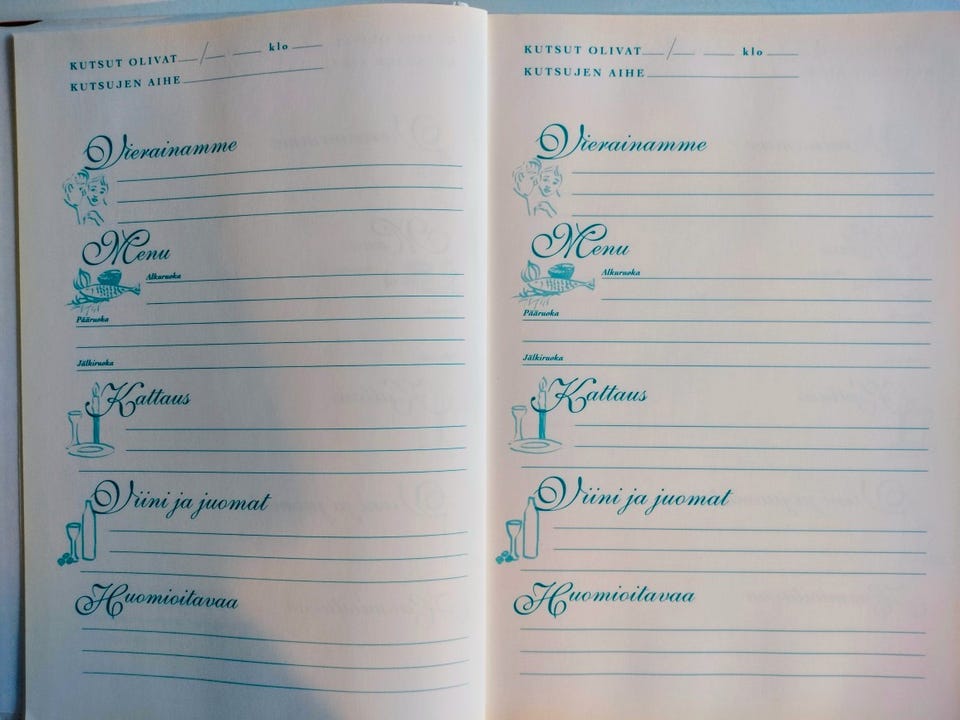 KUTSUT OLIVAT / klo
KUTSUJEN AIHE
Vierainamme
Menu
Alkuruoka
Pääruoka
Jälkiruoka
Kattaus
Viini ja juomat
Huomioitavaa
KUTSUT OLIVAT / klo
KUTSUJEN AIHE
Vierainamme
Menu
Alkuruoka
Pääruoka
Jälkiruoka
Kattaus
Viini ja juomat
Huomioitavaa